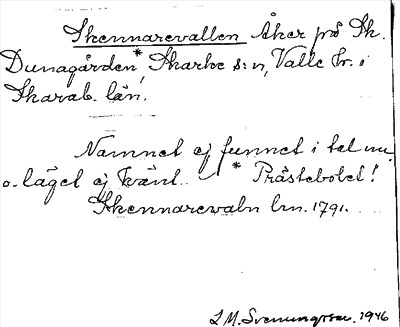 Skennarevallen Åker på Sk.
Dunagården* Skarke s:n, Valle hr. i
Skarab. län.
Namnet ej funnet i tal nu
o. läget ej känt. * Prästebolet!
Skennarevaln lrn. 1791.
L.M. Svenungsson. 1946